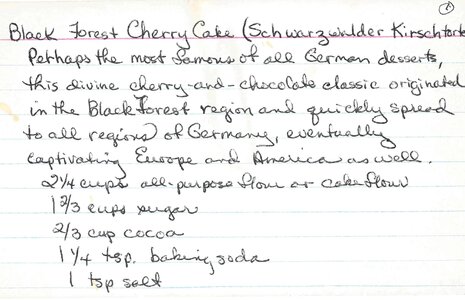 ①
Black Forest Cherry Cake (Schwarzwalder Kirschtort
Perhaps the most famous of all German desserts,
this divine cherry-and-chocolate classic originated
in the Black Forest region and quickly spread
to all regions of Germany, eventually
captivating Europe and America as well.
2 1/4 cups all-purpose flour or cake flour
1 2/3 cups sugar
2/3 cup cocoa
1 1/4 tsp. baking soda
1 tsp salt